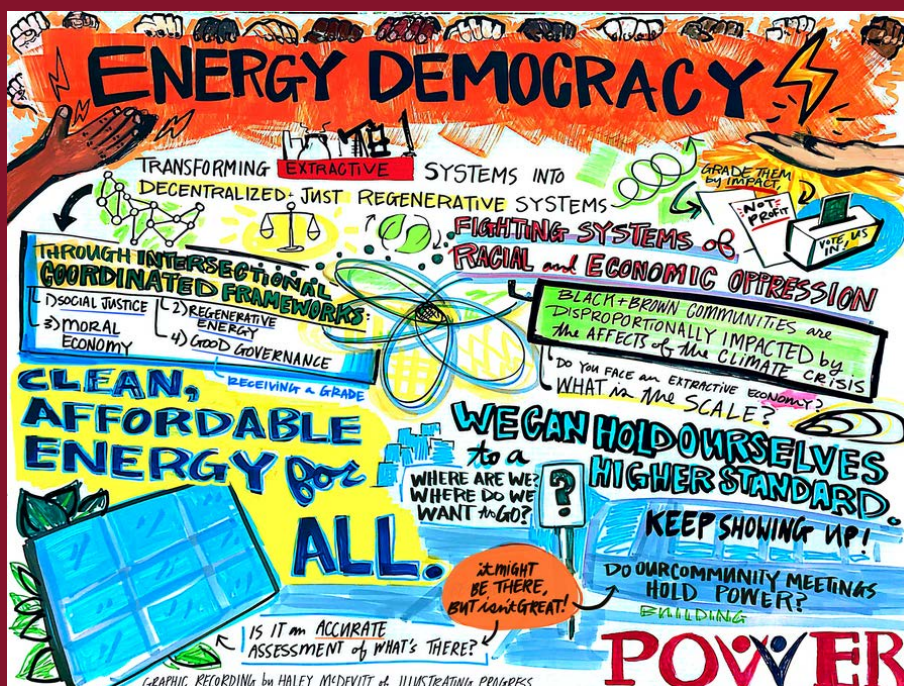 ENERGY DEMOCRACY
TRANSFORMING EXTRACTIVE SYSTEMS INTO
DECENTRALIZED JUST REGENERATIVE SYSTEMS
GRADE THEM
by IMPACT,
NOT
PROFIT
VOTE US
IN,
FIGHTING SYSTEMS of
RACIAL and ECONOMIC OPPRESSION
THROUGH INTERSECTIONAL
COORDINATED FRAMEWORKS:
1) SOCIAL JUSTICE
2) REGENERATIVE
ENERGY
3) MORAL
ECONOMY
4) GOOD GOVERNANCE
RECEIVING a GRADE
BLACK + BROWN COMMUNITIES are
DISPROPORTIONALLY IMPACTED by
the AFFECTS of the CLIMATE CRISIS
DO YOU FACE AN EXTRACTIVE ECONOMY?
WHAT is the SCALE?
CLEAN,
AFFORDABLE
ENERGY for
ALL.
WE CAN HOLD OURSELVES
to a
HIGHER STANDARD.
WHERE ARE WE?
WHERE DO WE
WANT to GO?
?
KEEP SHOWING UP!
DO OUR COMMUNITY MEETINGS
HOLD POWER?
BUILDING
POWER
it MIGHT
BE THERE,
BUT isn't GREAT!
IS IT an ACCURATE
ASSESSMENT of WHAT'S THERE?
GRAPHIC RECORDING by HALEY McDEVITT of ILLUSTRATING PROGRESS